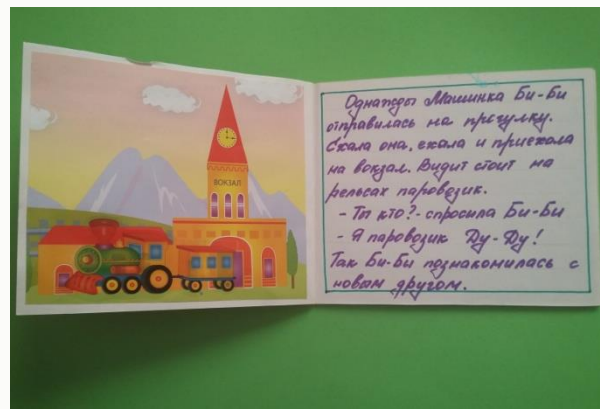 ВОКЗАЛ
Однажды Машинка Би-Би
отправилась на прогулку.
Ехала она, ехала и приехала
на вокзал. Видит стоит на
рельсах паровозик.
- Ты кто? - спросила Би-Би
- Я паровозик Ду-Ду!
Так Би-Би познакомилась с
новым другом.